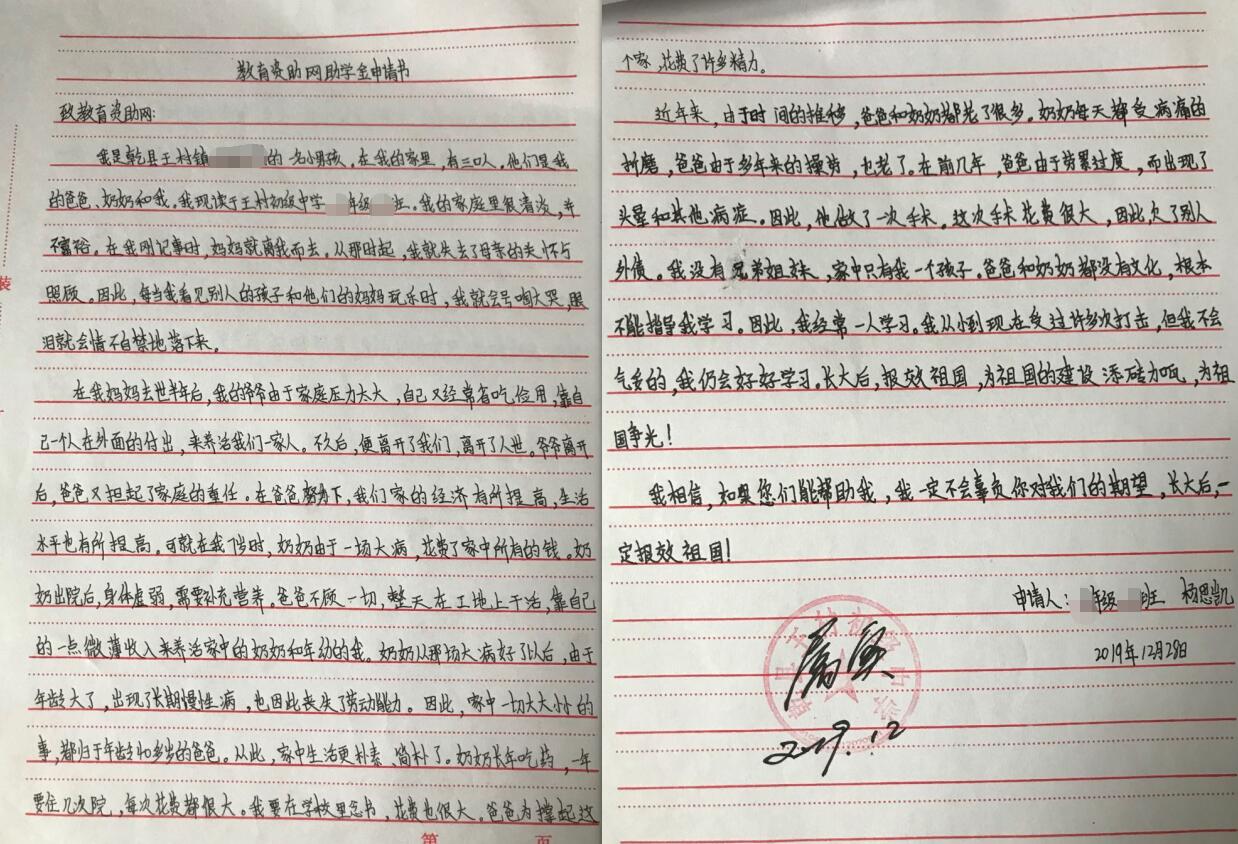 教育资助网助学金申请书
致教育资助网:
我是乾县王村镇 的一名小男孩。在我的家里，有三口人。他们是我
的爸爸、奶奶和我。我现读于王村初级中学 年级 班。我的家庭里很清淡，并
不富裕。在我刚记事时，妈妈就离我而去。从那时起，我就失去了母亲的关怀与
照顾。因此，每当我看见别人的孩子和他们的妈妈玩乐时，我就会号啕大哭，眼
泪就会情不自禁地落下来。
在我妈妈去世半年后，我的爷爷由于家庭压力太大，自己又经常省吃俭用，靠自
己一个人在外面的付出，来养活我们一家人。不久后，便离开了我们，离开了人世。爷爷离开
后，爸爸又担起了家庭的重任。在爸爸努力下，我们家的经济有所提高，生活
水平也有所提高。可就在我 时，奶奶由于一场大病，花费了家中所有的钱。奶
奶出院后，身体虚弱，需要补充营养。爸爸不顾一切，整天在工地上干活，靠自己
的一点微薄收入来养活家中的奶奶和年幼的我。奶奶从那场大病好了以后，由于
年龄大了，出现了长期慢性病，也因此丧失了劳动能力。因此，家中一切大大小小的
事，都归于年龄40多岁的爸爸。从此，家中生活更朴素、简朴了。奶奶长年吃药，一年
要住几次院，每次花费都很大。我要在学校里念书，花费也很大。爸爸为撑起这
第 页
装
个家，花费了许多精力。
近年来，由于时间的推移，爸爸和奶奶都老了很多。奶奶每天都受病痛的
折磨，爸爸由于多年来的操劳，也老了。在前几年，爸爸由于劳累过度，而出现了
头晕和其他病症。因此，他做了一次手术。这次手术花费很大，因此欠了别人
外债。我没有兄弟姐妹，家中只有我一个孩子。爸爸和奶奶都没有文化，根本
不能指导我学习。因此，我经常一人学习。我从小到现在受过许多次打击，但我不会
气馁的，我仍会好好学习。长大后，报效祖国，为祖国的建设添砖加瓦，为祖
国争光！
我相信，如果您们能帮助我，我一定不会辜负你对我们的期望，长大后，一
定报效祖国！
申请人: 年级 班 杨恩凯
2019年12月28日
2019.12